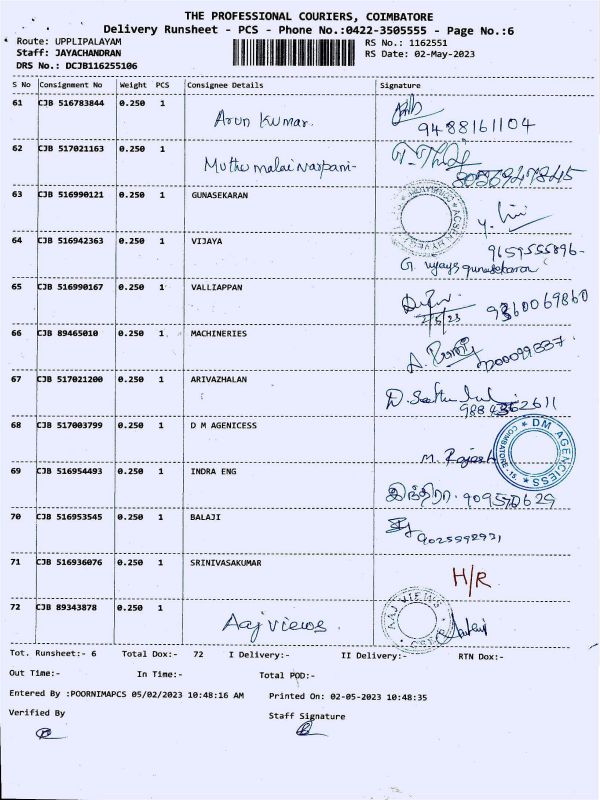 THE PROFESSIONAL COURIERS, COIMBATORE
Delivery Runsheet - PCS - Phone No.:0422-3505555 - Page No.:6
Route: UPPLIPALAYAM
RS No.: 1162551
Staff: JAYACHANDRAN
RS Date: 02-May-2023
DRS No.: DCJB116255106
S No Consignment No Weight PCS Consignee Details Signature
61 CJB 516783844 0.250 1 Arun Kumar.
9488161104
62 CJB 517021163 0.250 1
63 CJB 516990121 0.250 1 GUNASEKARAN
64 CJB 516942363 0.250 1 VIJAYA
9659555896-
65 CJB 516990167 0.250 1 VALLIAPPAN
2/5/23
66 CJB 89465010 0.250 1 MACHINERIES
67 CJB 517021200 0.250 1 ARIVAZHALAN
68 CJB 517003799 0.250 1 D M AGENICESS
M. Rajesh
DM AGENCIESS
COIMBATORE - 15
69 CJB 516954493 0.250 1 INDRA ENG
இந்திரா. 909570629
70 CJB 516953545 0.250 1 BALAJI
71 CJB 516936076 0.250 1 SRINIVASAKUMAR
H/R
72 CJB 89343878 0.250 1 Aaj views.
AAJ VIEWS
Tot. Runsheet:- 6 Total Dox:- 72 I Delivery:- II Delivery:- RTN Dox:-
Out Time:- In Time:- Total POD:-
Entered By :POORNIMAPCS 05/02/2023 10:48:16 AM Printed On: 02-05-2023 10:48:35
Verified By
Staff Signature